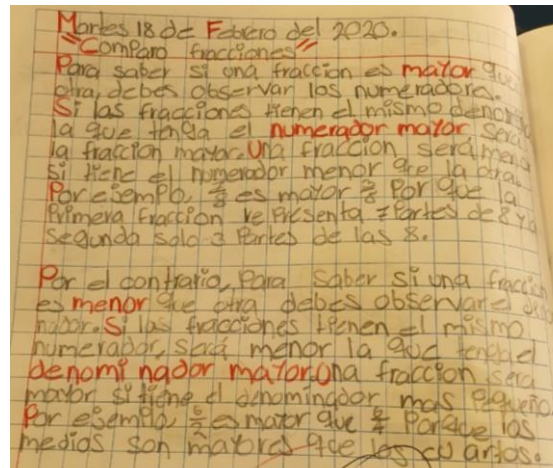 Martes 18 de Febrero del 2020.
"Comparo fracciones"
Para saber si una fraccion es mayor que
otra, debes observar los numeradores.
Si las fracciones tienen el mismo
la que tenga el numerador mayor será
la fraccion mayor. Una fraccion será
si tiene el numerador menor que la otra.
Por ejemplo, 7/8 es mayor 3/8 Por que la
Primera fraccion rePresenta 7 Partes de 8 y
segunda solo 3 Partes de las 8.
Por el contrario, Para saber si una
es menor que otra debes observar
Si las fracciones tienen el mismo
numerador, será menor la que tenga el
denominador mayor. Una fraccion será
mayor si tiene el denominador mas Pequeño
Por ejemplo, es mayor que Porque los
medios son mayores que los cuartos.